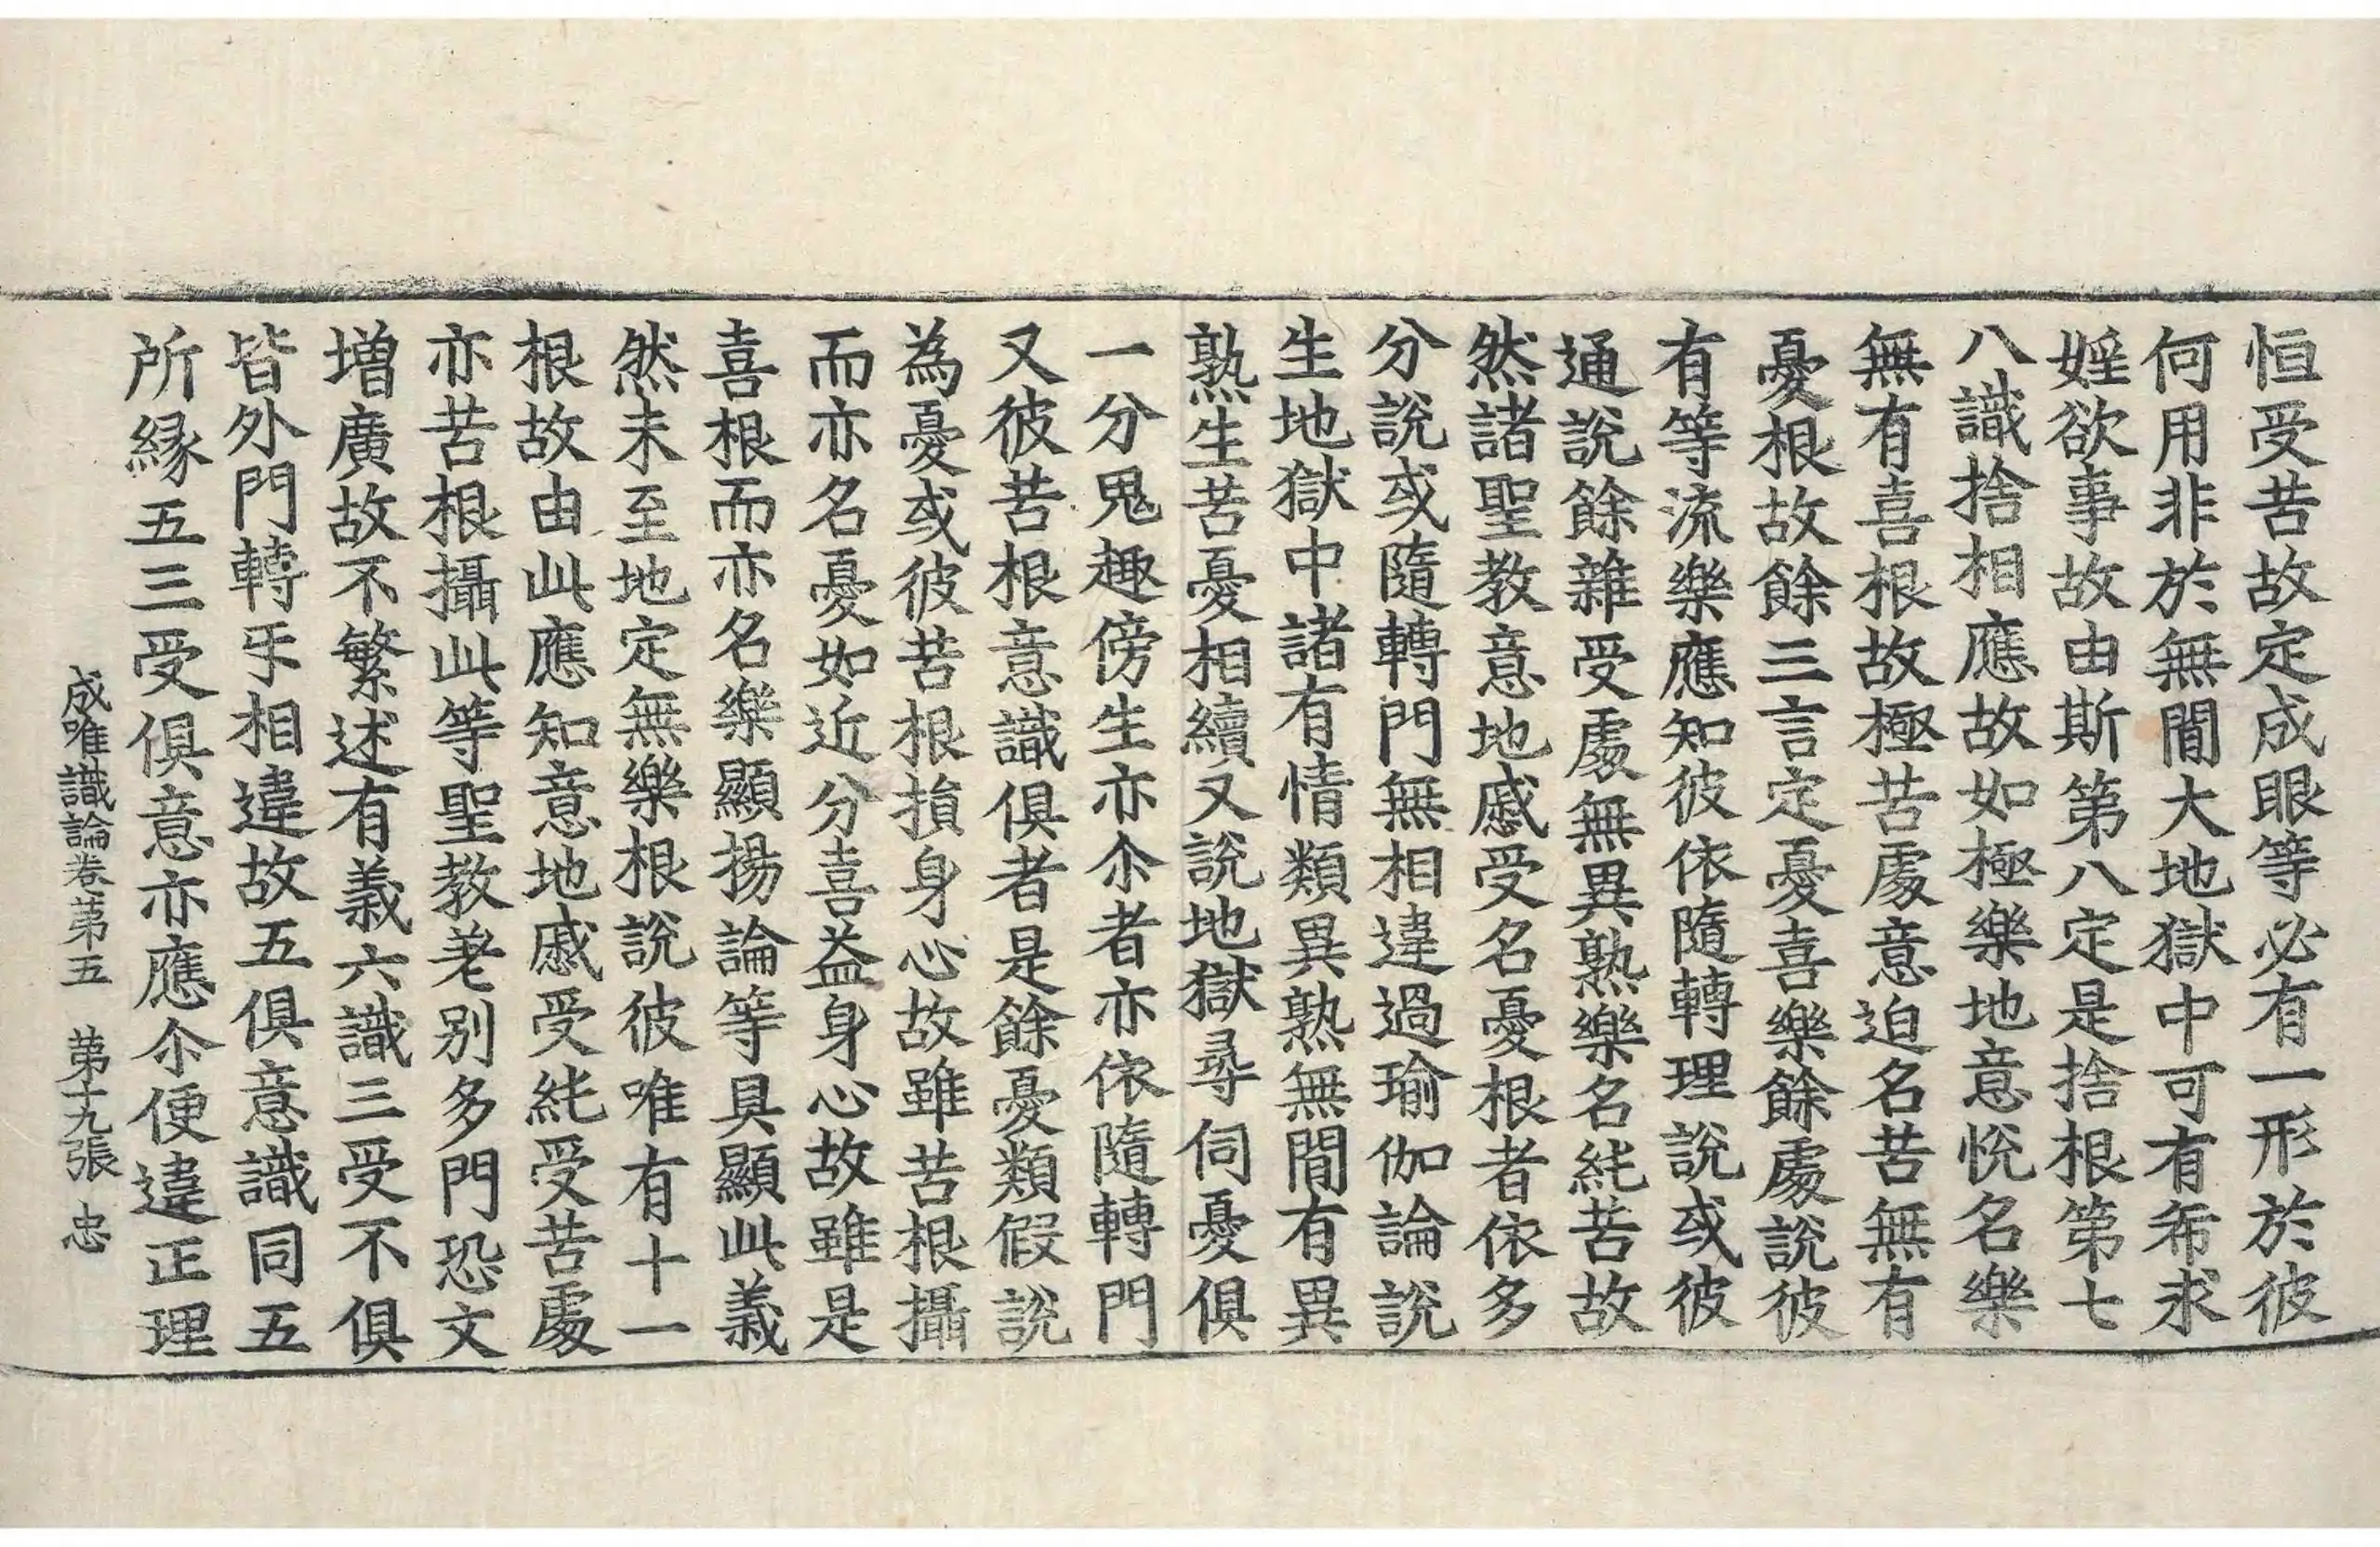 恒受苦故定成眼等必有一形於彼
何用非於無間大地獄中可有希求
婬欲事故由斯第八定是捨根第七
八識捨相應故如極樂地意悅名樂
無有喜根故極苦處意迫名苦無有
憂根故餘三言定憂喜樂餘處說彼
有等流樂應知彼依隨轉理說或彼
通說餘雜受處無異熟樂名純苦故
然諸聖教意地慼受名憂根者依多
分說或隨轉門無相違過瑜伽論說
生地獄中諸有情類異熟無間有異
熟生苦憂相續又說地獄尋伺憂俱
一分鬼趣傍生亦尒者亦依隨轉門
又彼苦根意識俱者是餘憂類假說
為憂或彼苦根損身心故雖苦根攝
而亦名憂如近分喜益身心故雖是
喜根而亦名樂顯揚論等具顯此義
然未至地定無樂根說彼唯有十一
根故由此應知意地慼受純受苦處
亦苦根攝此等聖教差別多門恐文
增廣故不繁述有義六識三受不俱
皆外門轉㸦相違故五俱意識同五
所緣五三受俱意亦應尒便違正理
成唯識論卷第五 第十九張 忠